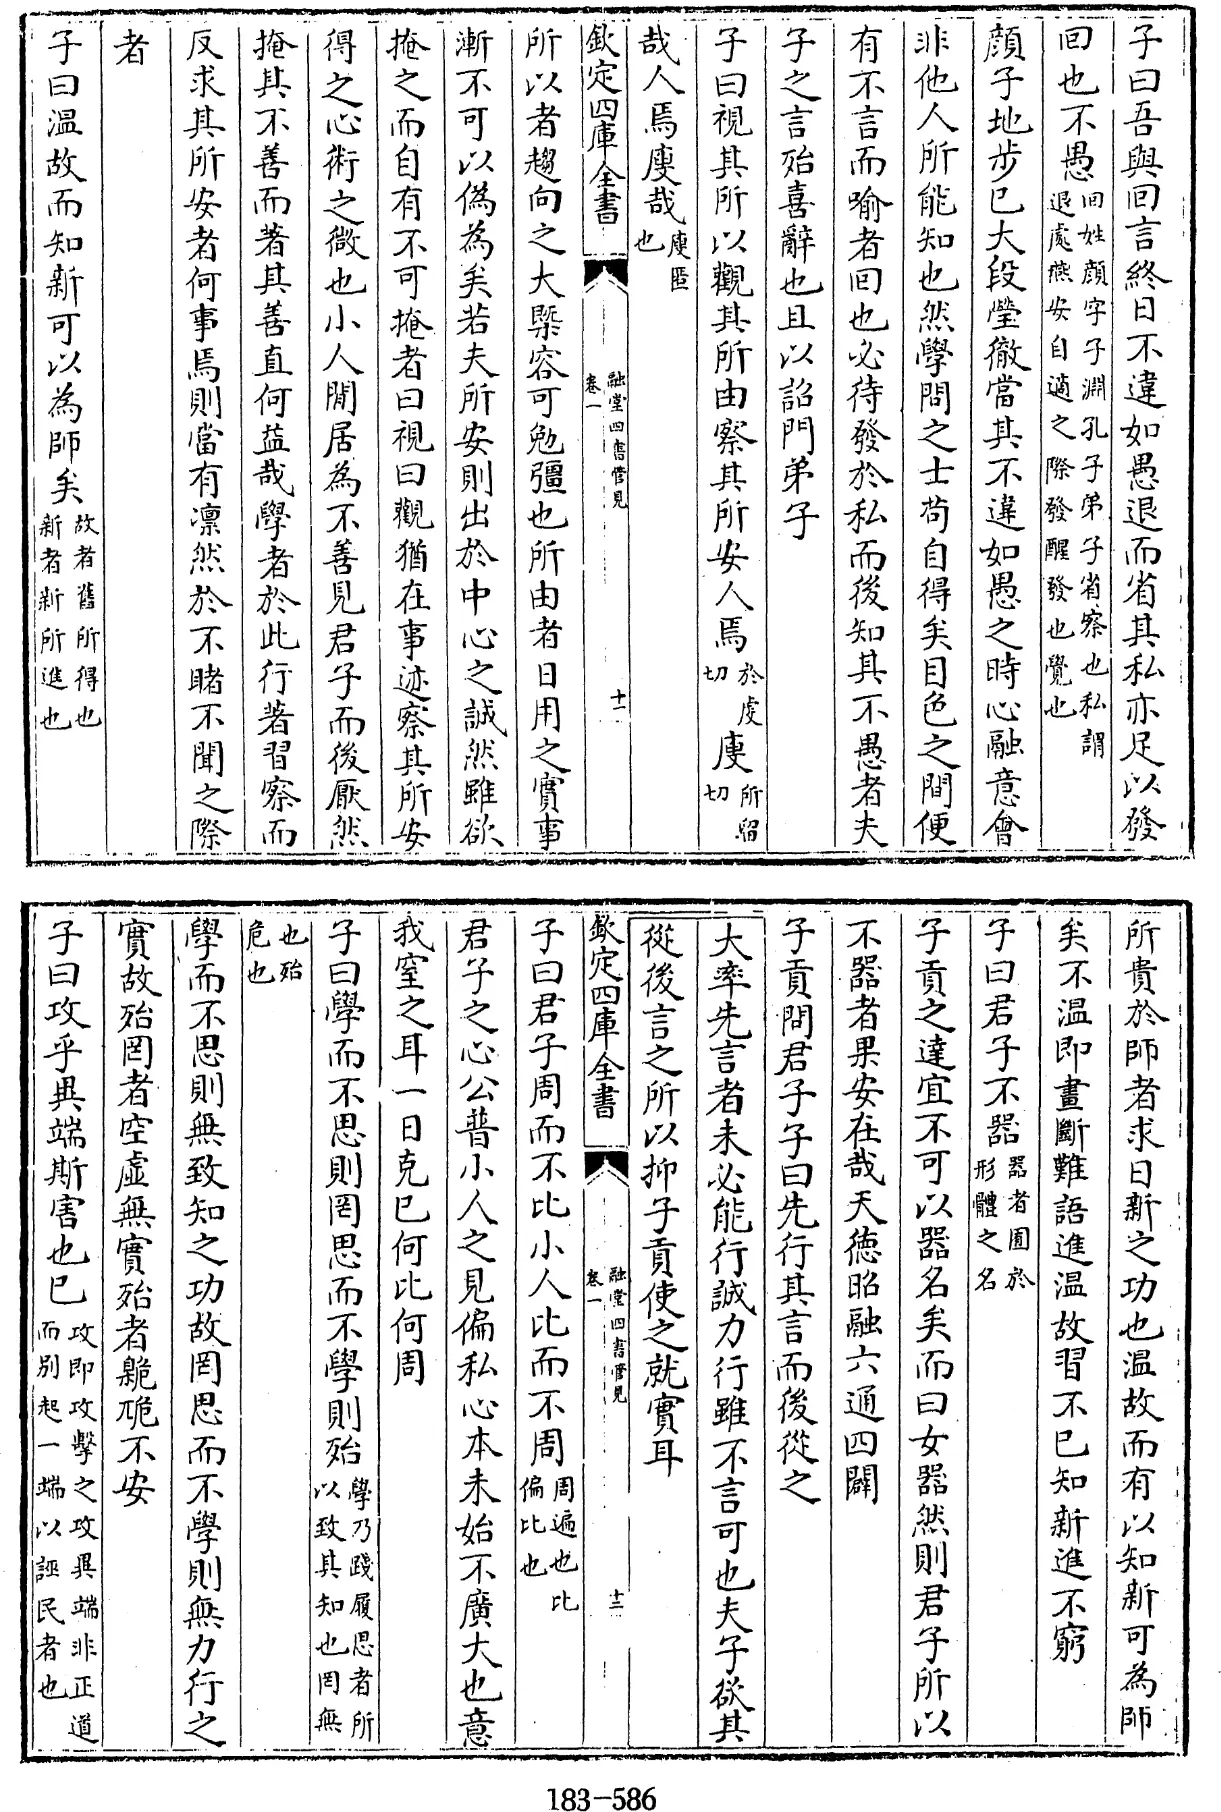 子曰吾與回言終日不違如愚退而省其私亦足以發
回也不愚回姓顔字子淵孔子弟子省察也私謂退處燕安自適之際發醒發也覺也
顔子地步已大段瑩徹當其不違如愚之時心融意會
非他人所能知也然學問之士苟自得矣目色之間便
有不言而喻者回也必待發於私而後知其不愚者夫
子之言殆喜辭也且以詔門弟子
子曰視其所以觀其所由察其所安人焉於虔切廋所留切
哉人焉廋哉廋匿也
欽定四庫全書
融堂四書管見
卷一
十一
所以者趨向之大槩容可勉彊也所由者日用之實事
漸不可以僞為矣若夫所安則出於中心之誠然雖欲
掩之而自有不可掩者曰視曰觀猶在事迹察其所安
得之心術之微也小人閒居為不善見君子而後厭然
掩其不善而著其善直何益哉學者於此行著習察而
反求其所安者何事焉則當有凛然於不睹不聞之際
者
子曰温故而知新可以為師矣故者舊所得也新者新所進也
所貴於師者求日新之功也温故而有以知新可為師
矣不温即畫斷難語進温故習不已知新進不窮
子曰君子不器器者囿於形體之名
子貢之達宜不可以器名矣而曰女器然則君子所以
不器者果安在哉天德昭融六通四闢
子貢問君子子曰先行其言而後從之
大率先言者未必能行誠力行雖不言可也夫子欲其
從後言之所以抑子貢使之就實耳
欽定四庫全書
融堂四書管見
卷一
十二
子曰君子周而不比小人比而不周周遍也比偏比也
君子之心公普小人之見偏私心本未始不廣大也意
我窒之耳一日克已何比何周
子曰學而不思則罔思而不學則殆學乃踐履思者所以致其知也罔無
也殆危也
學而不思則無致知之功故罔思而不學則無力行之
實故殆罔者空虛無實殆者臲卼不安
子曰攻乎異端斯害也已攻即攻擊之攻異端非正道而别起一端以誣民者也
183-586